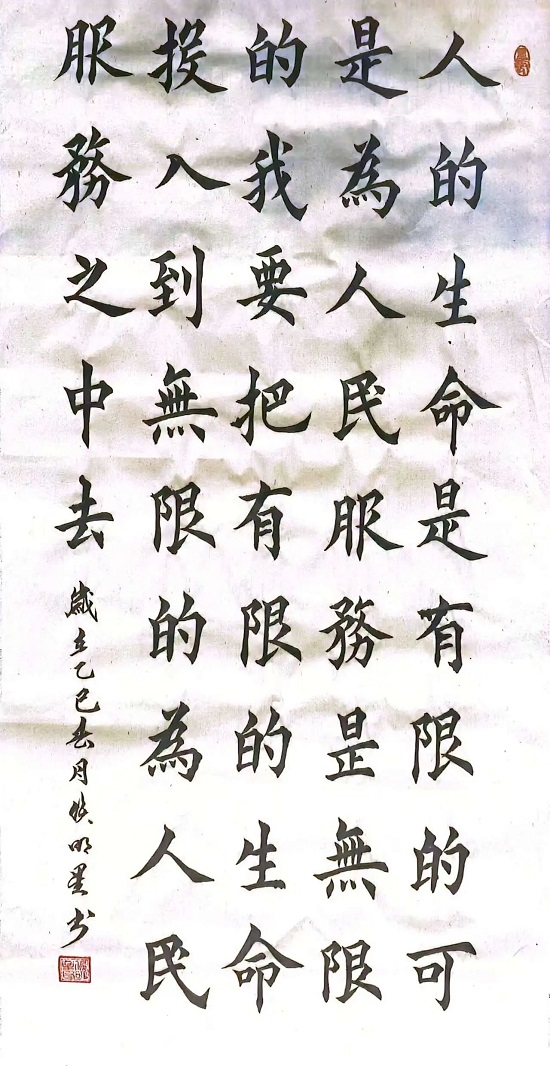 人的生命是有限的可
是為人民服務是無限
的我要把有限的生命
投入到無限的為人民
服務之中去
歲在乙巳春月 明星書